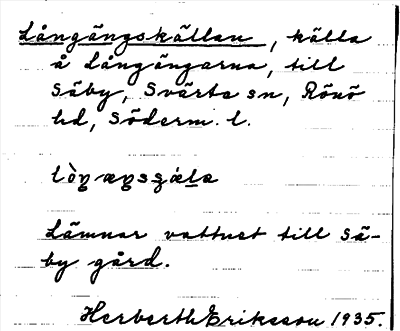 Långängskällan, källa
å Långängarna, till
Säby, Svärta sn, Rönö
hd, Söderm. l.
Lämnar vattnet till Sä-
by gård.
Herberth Eriksson 1935.